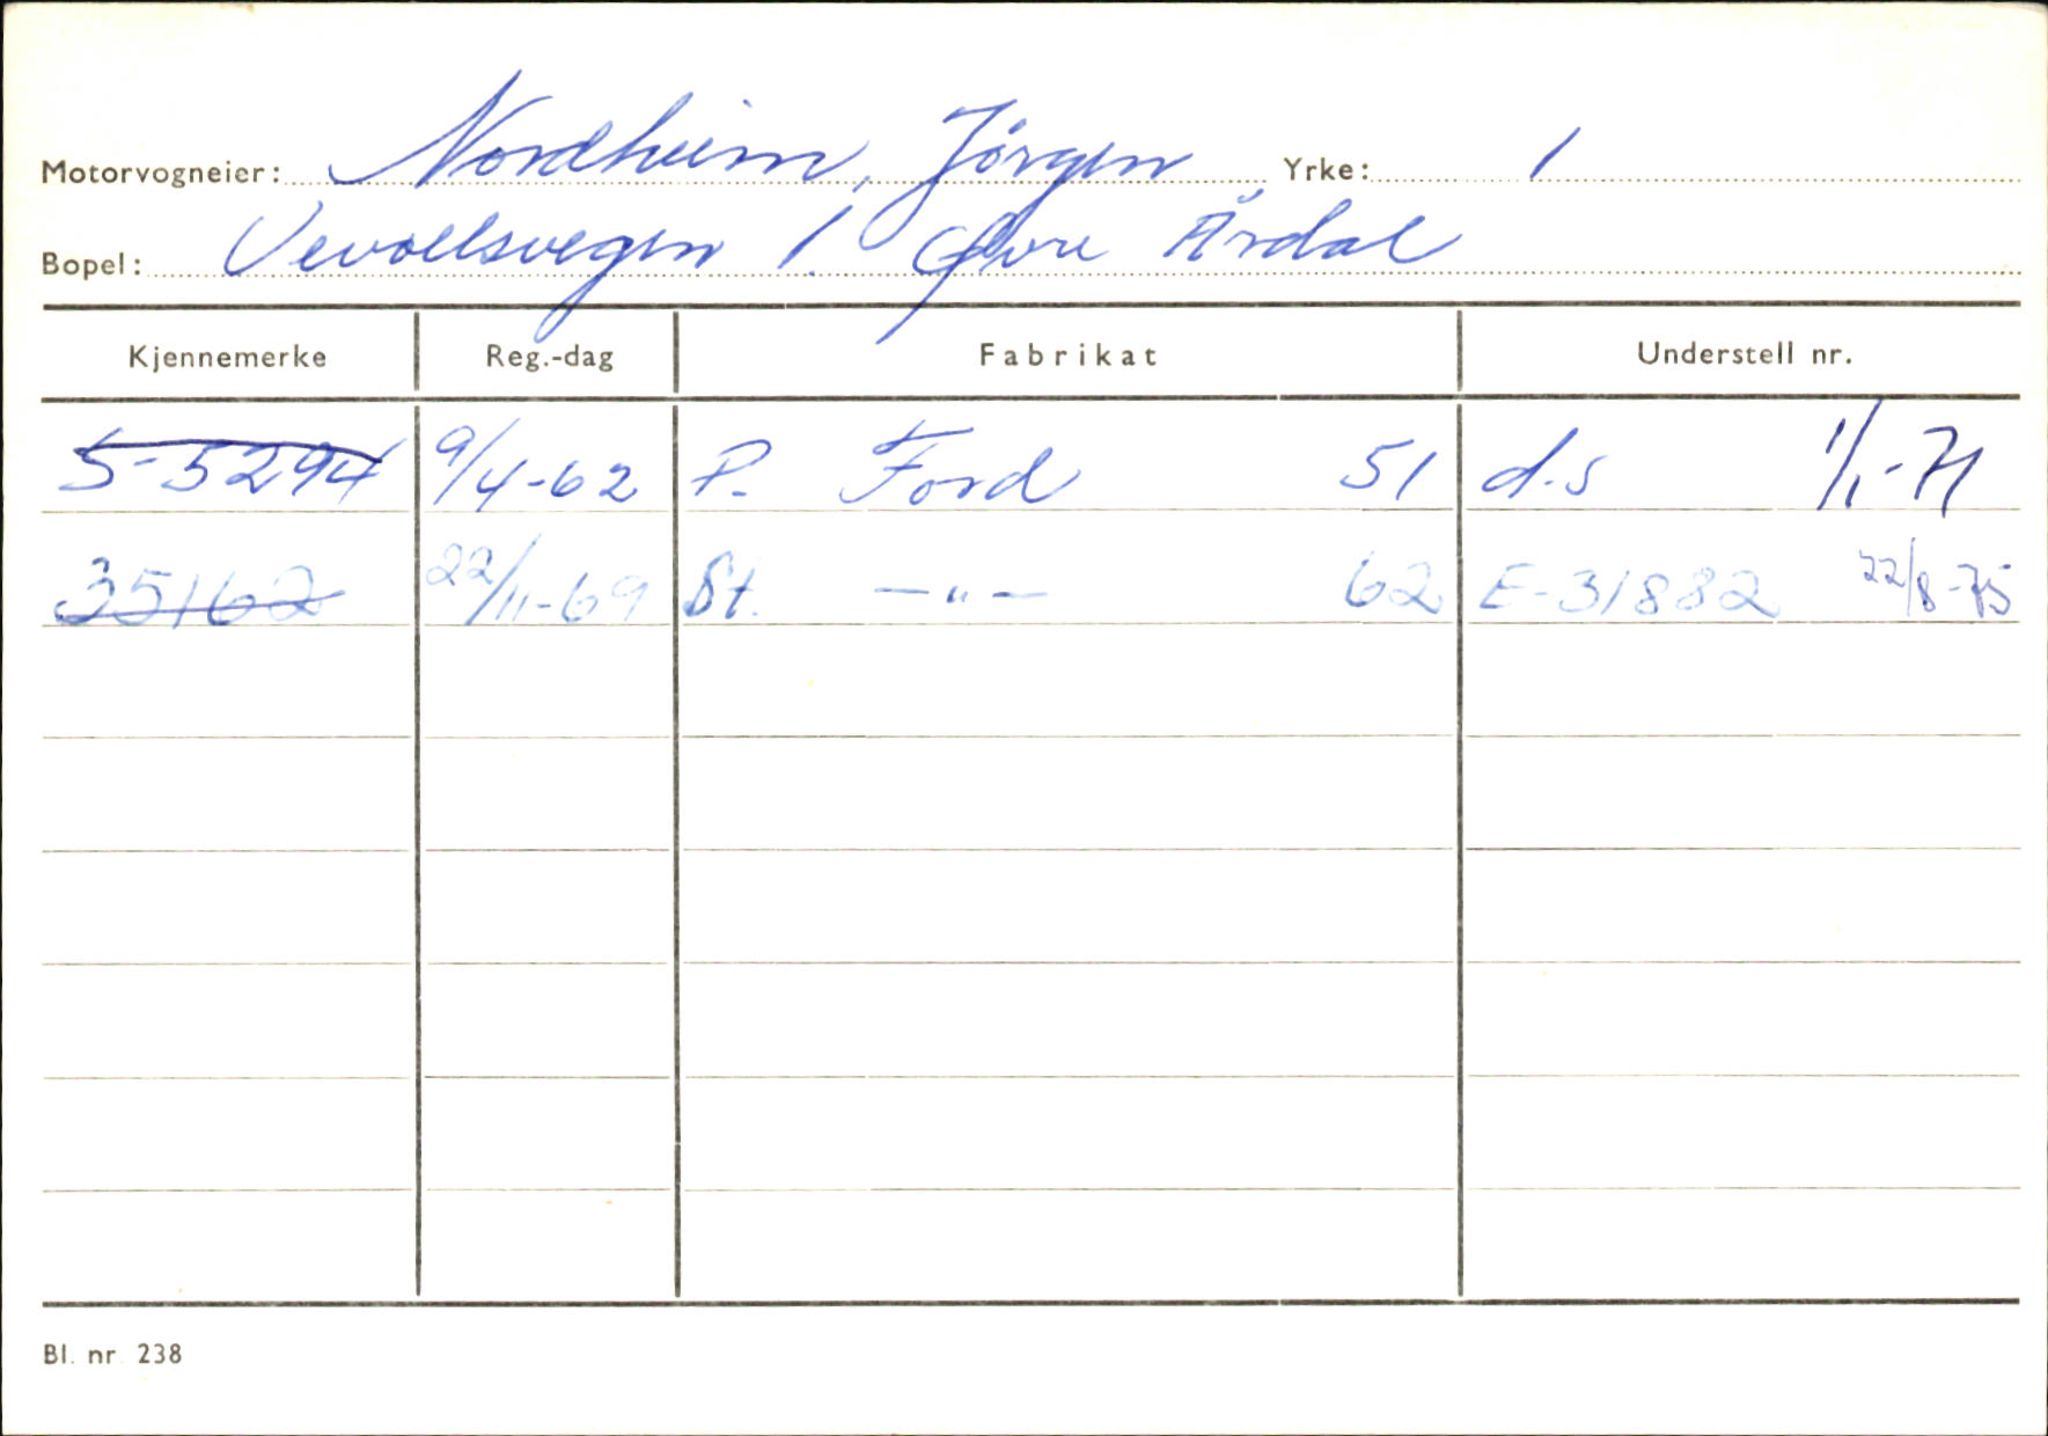 Motorvogneier: Nordheim, Jørgen Yrke: 1
Bopel: Vevollsvegen 1. Øvre Årdal
Kjennemerke Reg.-dag Fabrikat Understell nr.
S-5294 9/4-62 P. Ford 51 d.s 1/1-71
35162 22/11-69 St. —"— 62 E-31882 22/8-75
Bl. nr. 238